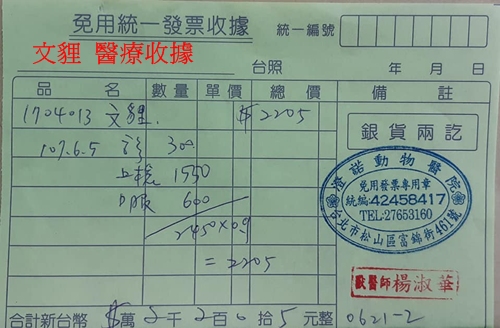 免用統一發票收據
統一編號
文貍 醫療收據
台照 年 月 日
品 名 數量 單價 總價 備 註
1704013 文貍. $2205
銀貨兩訖
107.6.5 診 300
1550
口服 600
2450×0.9
=2205
澄諾動物醫院
免用發票專用章
統編:42458417
TEL:27653160
台北市松山區富錦街461號
獸醫師 楊淑華
合計新台幣 $ 萬 2 千 2 百 0 拾 5 元整 0621-2